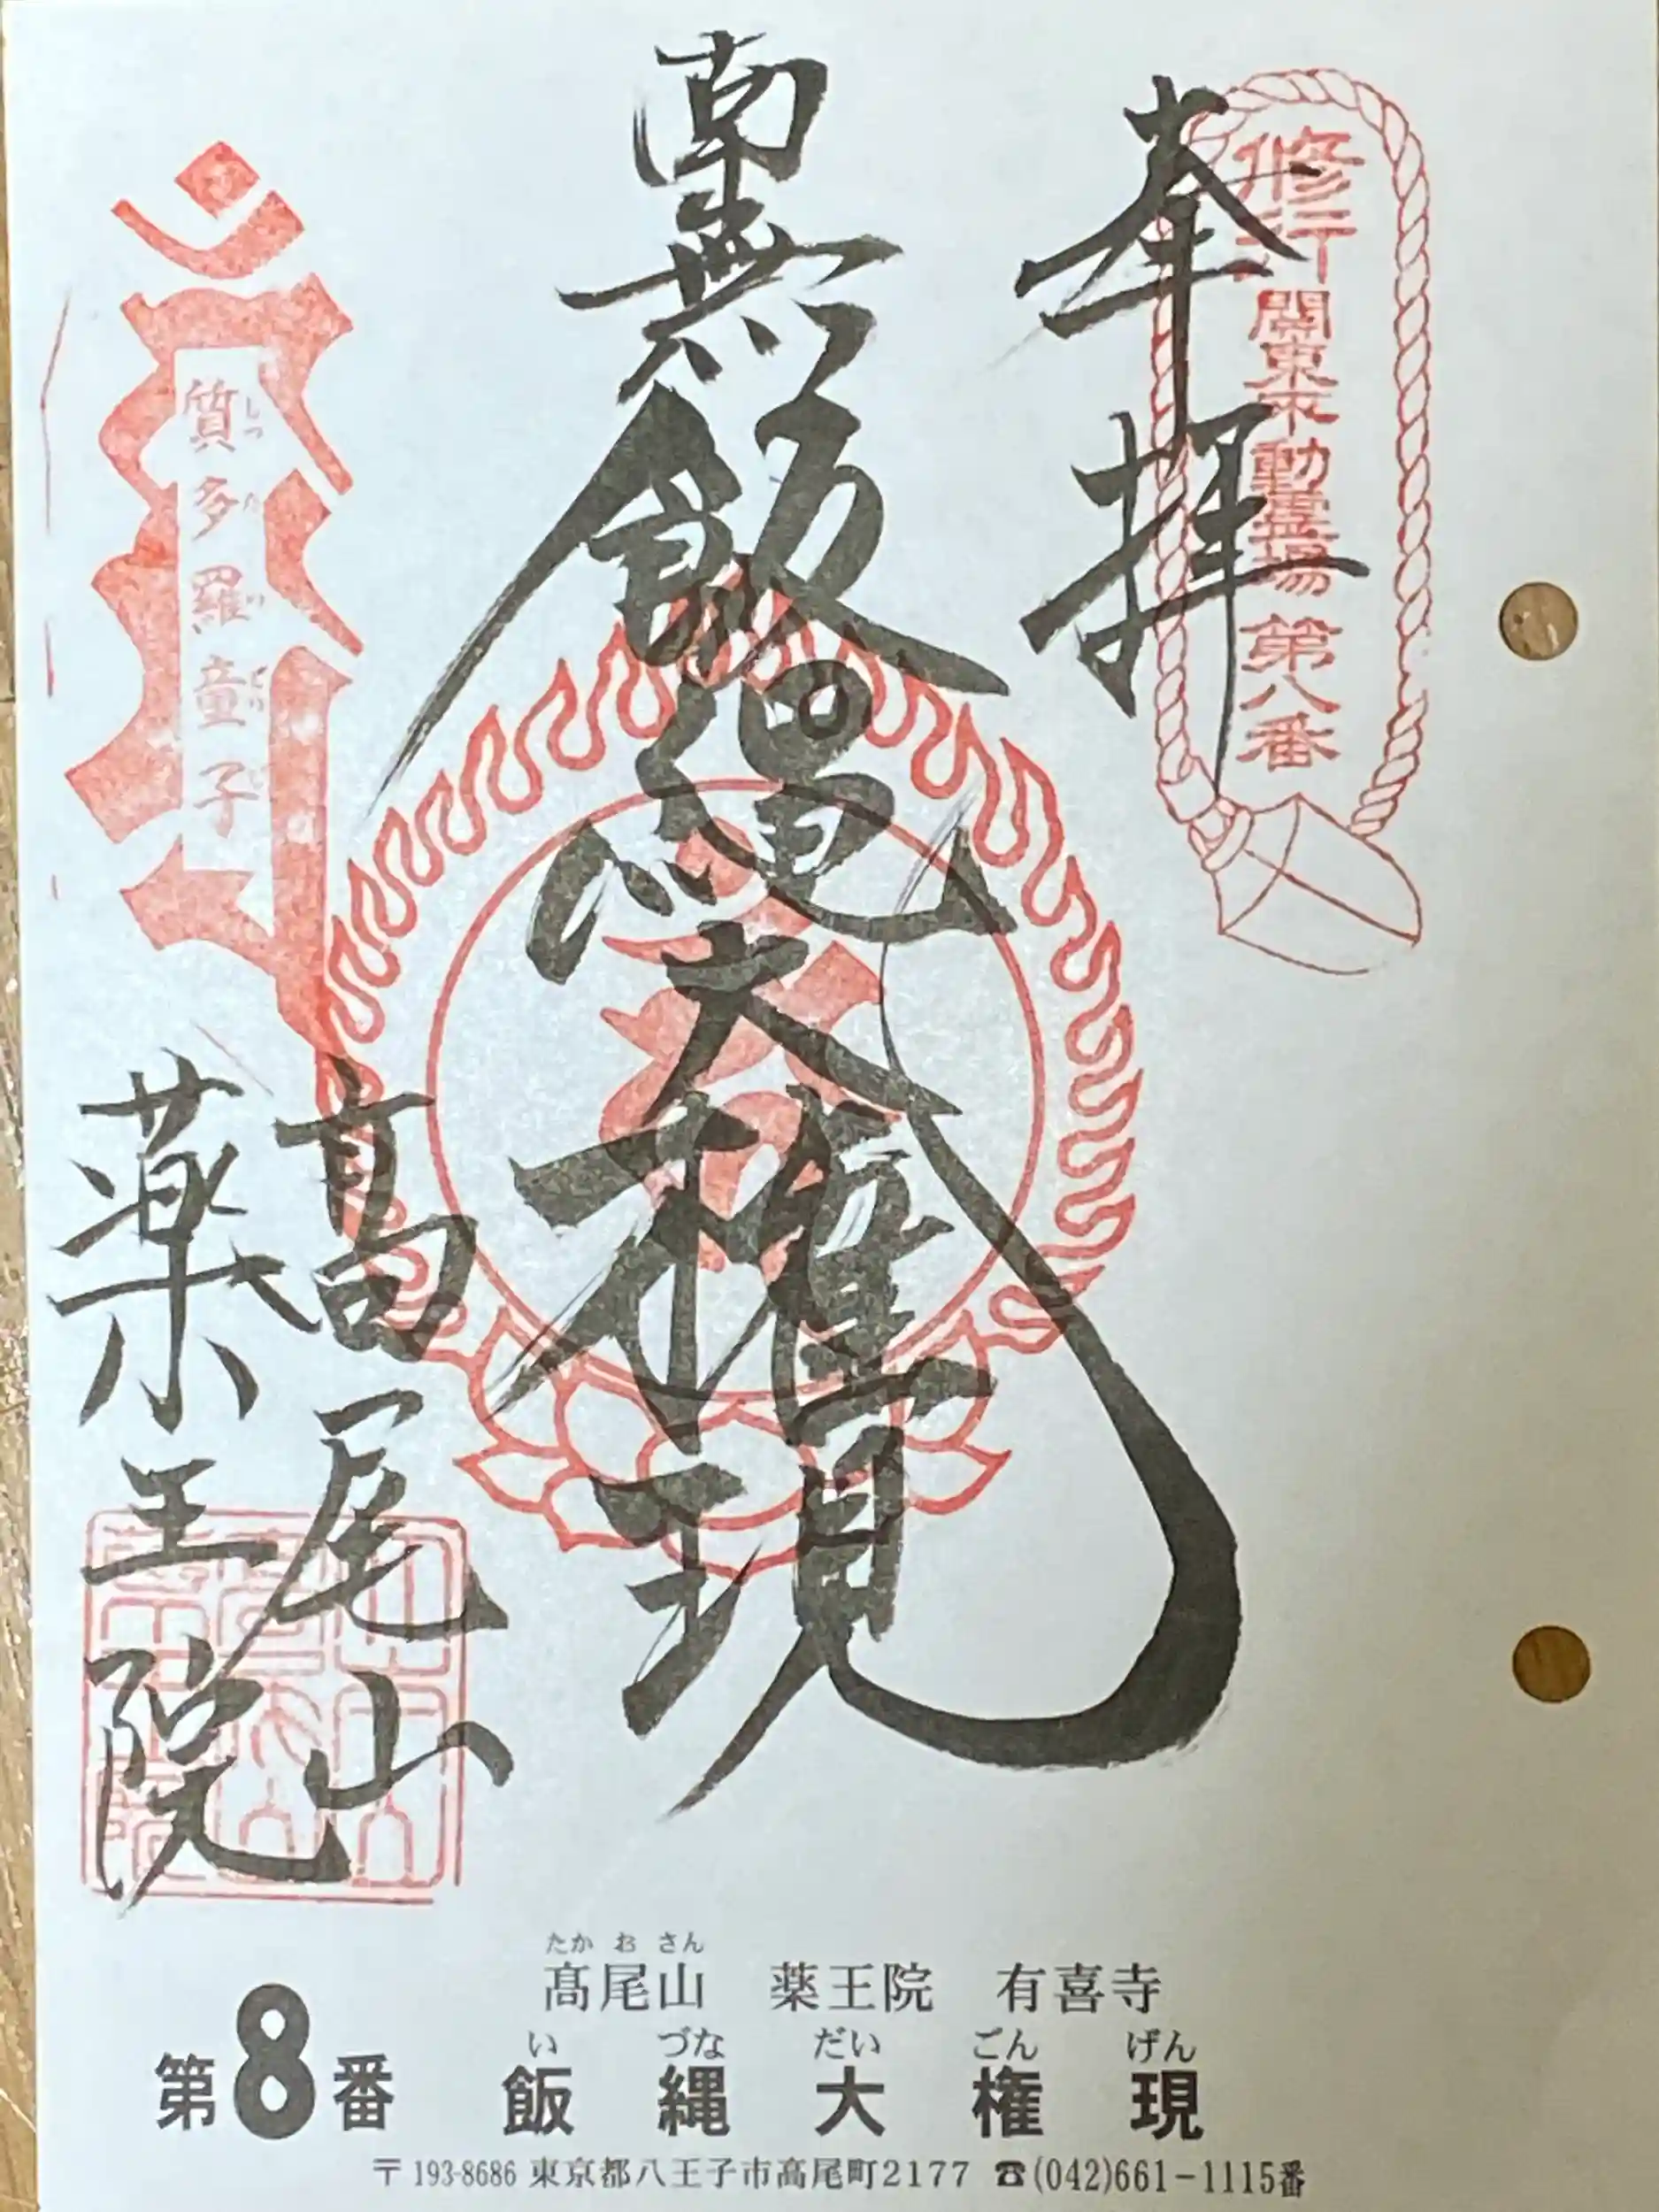 奉拝
修行関東不動霊場第八番
南無飯縄大権現
しつたらどうじ
質多羅童子
高尾山
薬王院
たかおさん
髙尾山 薬王院 有喜寺
いづなだいごんげん
第8番 飯縄大権現
〒193-8686 東京都八王子市高尾町2177 ☎(042)661-1115番